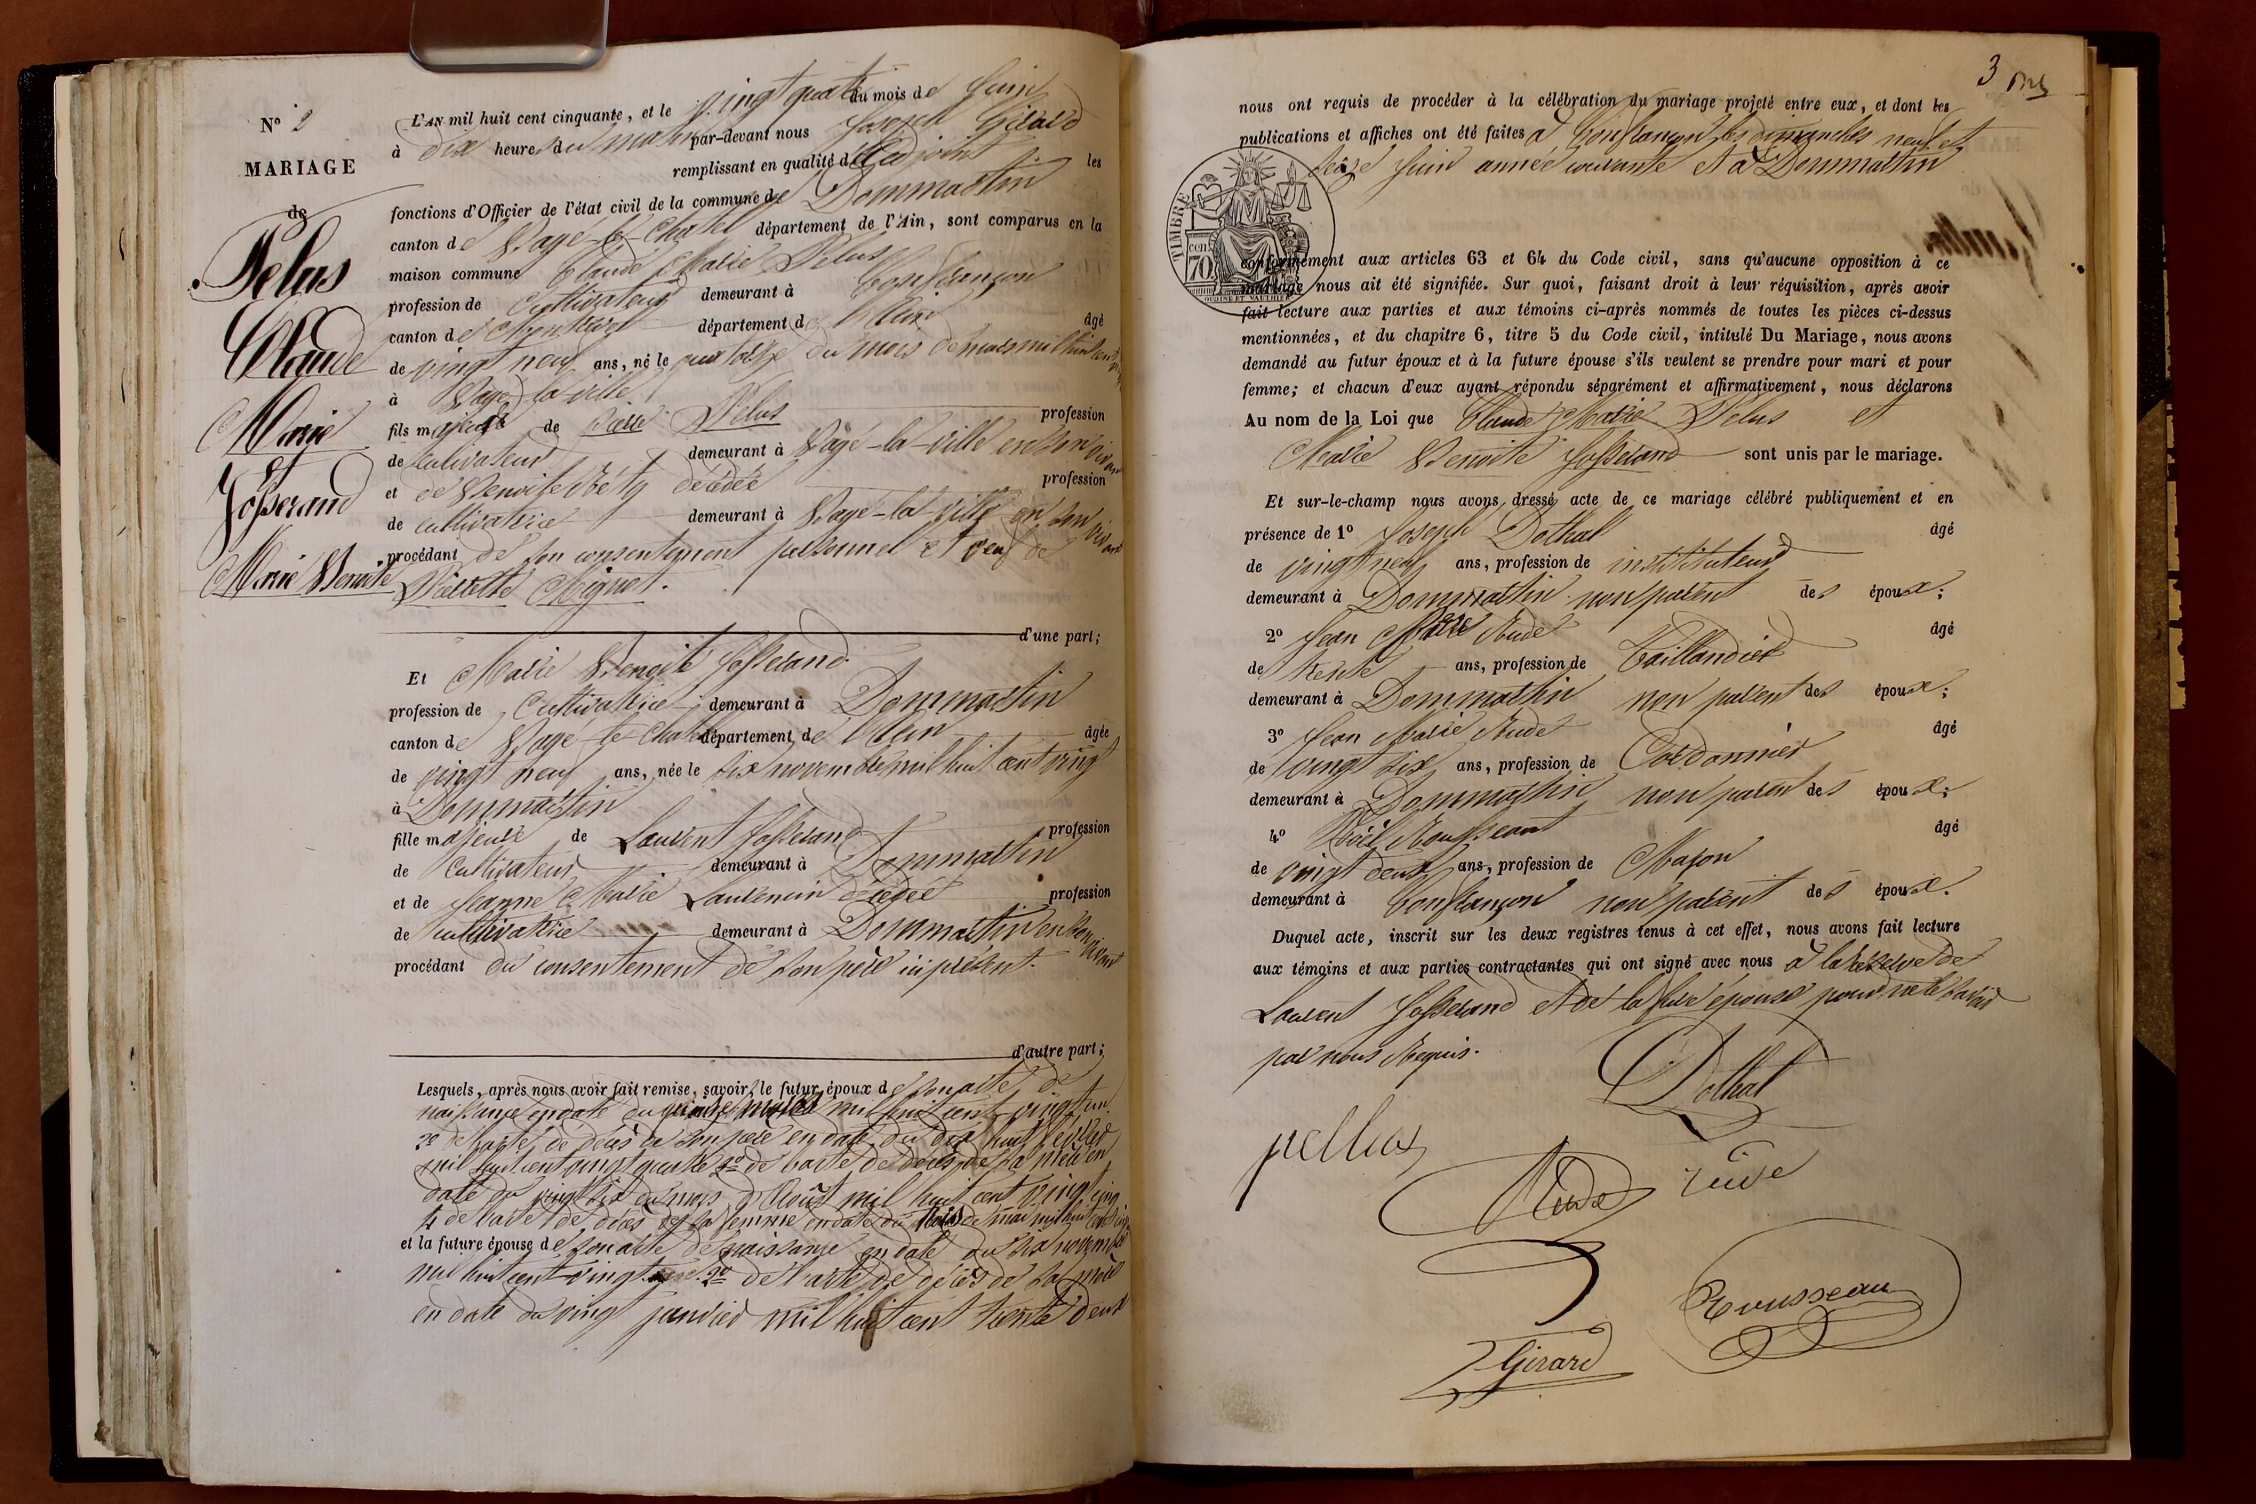 N° 2
MARIAGE
de
Pelus
Claude
Marie
et
Josserand
Marie Benoite
L'AN mil huit cent cinquante, et le vingt quatre du mois de Juin
à dix heure du matin par-devant nous Joseph Girard
remplissant en qualité d'adjoint les
fonctions d'Officier de l'état civil de la commune de Dommartin
canton de Bagé-le-Chatel département de l'Ain, sont comparus en la
maison commune Claude Marie Pelus
profession de Cultivateur demeurant à Confrançon
canton de Montrevel département de l'Ain âgé
de vingt neuf ans, né le quatorze du mois de mars mil huit cent
à Bagé-la-ville
fils majeur de Pierre Pelus profession
de cultivateur demeurant à Bagé-la-ville en son vivant
et de Benoite Béty décédée profession
de cultivatrice demeurant à Bagé-la-ville en son vivant
procédant de son consentement personnel et veuf de
Pierrette Mignot.
d'une part;
Et Marie Benoite Josserand
profession de Cultivatrice demeurant à Dommartin
canton de Bagé-le-Chatel département de l'Ain âgée
de vingt neuf ans, née le six novembre mil huit cent vingt
à Dommartin
fille majeure de Laurent Josserand profession
de Cultivateur demeurant à Dommartin
et de Jeanne Marie Laurencin décédée profession
de cultivatrice demeurant à Dommartin en son vivant
procédant du consentement de son père ici présent.
d'autre part;
Lesquels, après nous avoir fait remise, savoir, le futur époux de son acte de
naissance en date du mars mil huit cent vingt un
2° de l'acte de décès de son père en date du dix huit février
mil huit cent vingt quatre 3° de l'acte de décès de sa mère en
date du vingt six du mois d'Août mil huit cent vingt cinq
4° de l'acte de décès de sa femme en date du trois de mai mil huit cent
et la future épouse de son acte de naissance en date du six novembre
mil huit cent vingt 2° de l'acte de décès de sa mère
en date du vingt janvier mil huit cent trente deux
3
nous ont requis de procéder à la célébration du mariage projeté entre eux, et dont les
publications et affiches ont été faites à Confrançon les dimanches neuf et
seize Juin année courante et à Dommartin
TIMBRE
cen.
70
conformément aux articles 63 et 64 du Code civil, sans qu'aucune opposition à ce
mariage nous ait été signifiée. Sur quoi, faisant droit à leur réquisition, après avoir
fait lecture aux parties et aux témoins ci-après nommés de toutes les pièces ci-dessus
mentionnées, et du chapitre 6, titre 5 du Code civil, intitulé Du Mariage, nous avons
demandé au futur époux et à la future épouse s'ils veulent se prendre pour mari et pour
femme; et chacun d'eux ayant répondu séparément et affirmativement, nous déclarons
Au nom de la Loi que Claude Marie Pelus et
Marie Benoite Josserand sont unis par le mariage.
Et sur-le-champ nous avons dressé acte de ce mariage célébré publiquement et en
présence de 1° Joseph Dothal âgé
de vingt neuf ans, profession de instituteur
demeurant à Dommartin non parent des époux;
2° Jean Marie Rude âgé
de trente ans, profession de Taillandier
demeurant à Dommartin non parent des époux;
3° Jean Marie Rude âgé
de vingt six ans, profession de Cordonnier
demeurant à Dommartin non parent des époux;
4° Noël Rousseaut âgé
de vingt deux ans, profession de Maçon
demeurant à Confrançon non parent des époux.
Duquel acte, inscrit sur les deux registres tenus à cet effet, nous avons fait lecture
aux témoins et aux parties contractantes qui ont signé avec nous à la réserve de
Laurent Josserand et de la future épouse pour ne le savoir
par nous Requis.
Dothal
pellus
Rude
rude
Rousseau
Girard